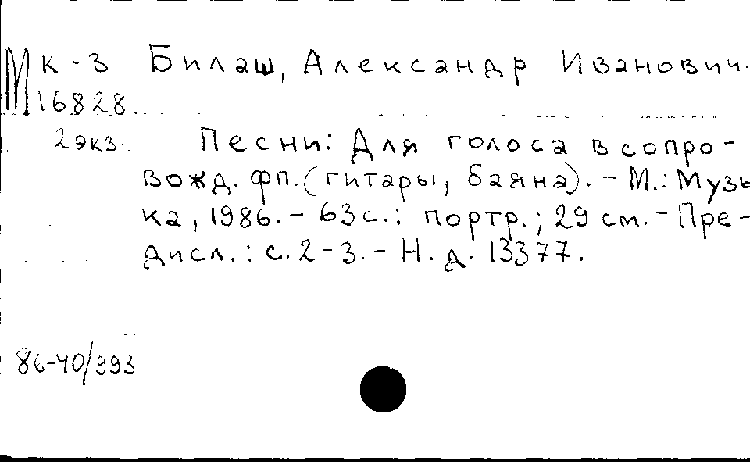 М К-3 Билаш, Александр Иванович.
16828
2 экз. Песни: Для голоса в сопро-
вожд. фп. (гитары, баяна). - М.: Музы
ка, 1986. - 63 с.: портр.; 29 см. - Пре-
дисл.: с. 2-3. - Н. д. 13377.
86-40/393